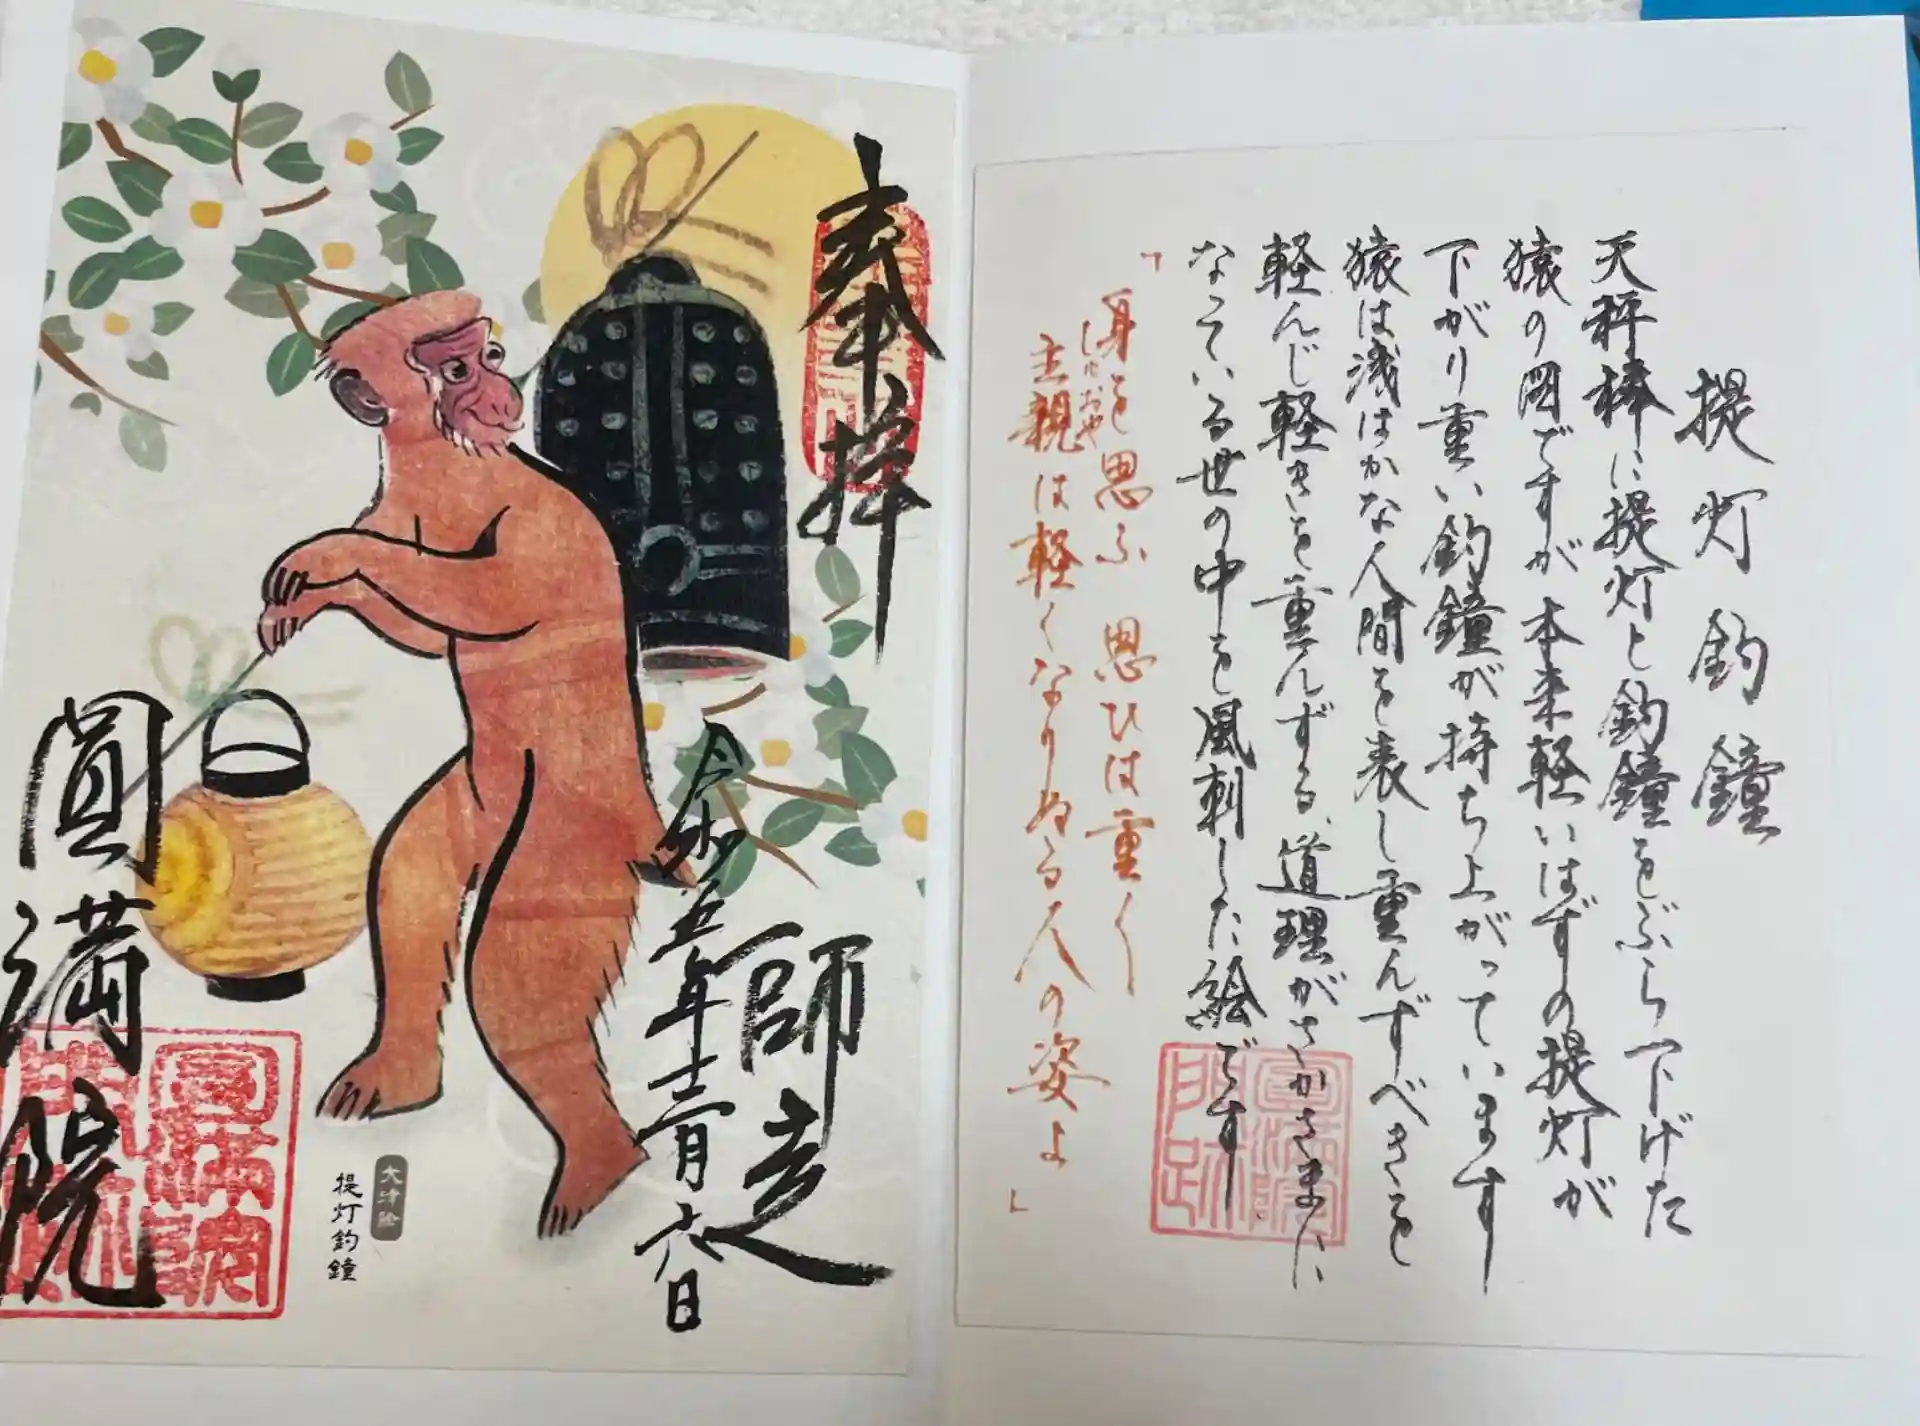 提灯釣鐘
天秤棒に提灯と釣鐘をぶら下げた
猿の図ですが本来軽いはずの提灯が
下がり重い釣鐘が持ち上がっています
猿は浅はかな人間を表し重んずべきを
軽んじ軽きを重んずる、道理がさかさまに
なっている世の中を風刺した絵です
「身を思ふ 思ひは重く
主親は軽くなりぬる人の姿よ」
圓満院
門跡
奉拝
師走
令和五年十二月
大津絵
提灯釣鐘
圓満院